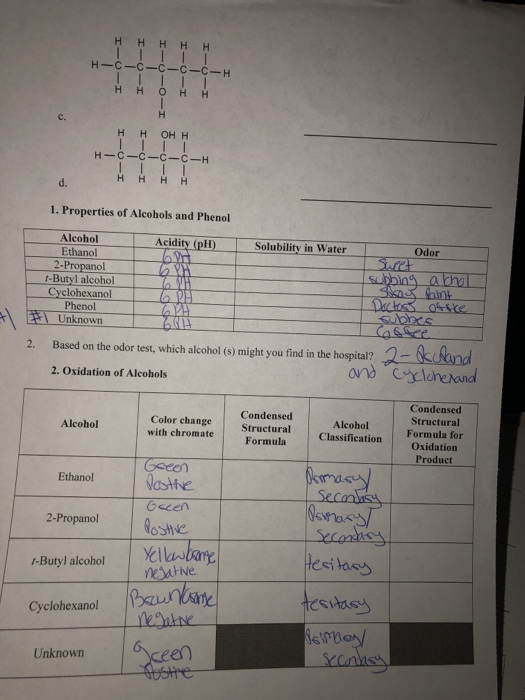 H H H H H
H-C-C-C-C-C-H
H H O H H
H
c.
H H OH H
H-C-C-C-C-H
H H H H
d.
1. Properties of Alcohols and Phenol
Alcohol Acidity (pH) Solubility in Water Odor
Ethanol 6pH Sweet
2-Propanol 6pH rubbing
t-Butyl alcohol 6pH Paint
Cyclohexanol 6pH Doctors office
Phenol 6pH
#1 Unknown 6pH Coffee
2. Based on the odor test, which alcohol (s) might you find in the hospital? 2-
and
2. Oxidation of Alcohols
Alcohol
Color change
with chromate
Condensed
Structural
Formula
Alcohol
Classification
Condensed
Structural
Formula for
Oxidation
Product
Ethanol
Green
Postive
Primary/
Secontary
2-Propanol
Green
Postive
Primary/
Secontary
t-Butyl alcohol
Yellow/orange
negative
tertiary
Cyclohexanol
negative
tertiary
Unknown
green
Postive
Primary/
Secontary